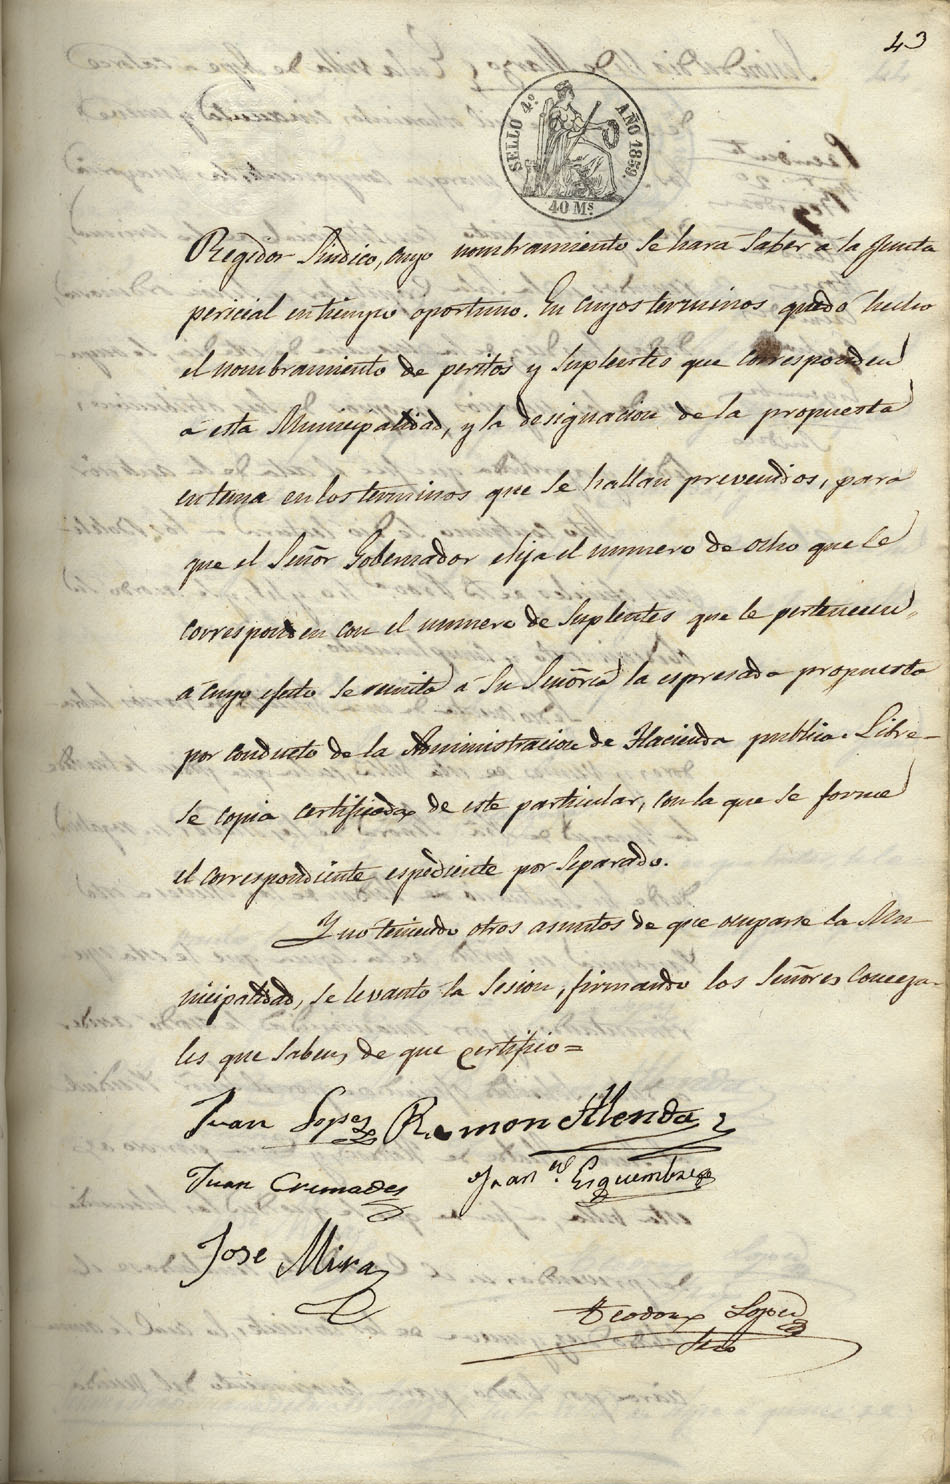 43
SELLO 4º AÑO 1859.
40 Ms
Regidor Sindico, cuyo nombramiento se hará saber á la Junta
pericial en tiempo oportuno. En cuyos terminos quedó hecho
el nombramiento de peritos y suplentes que corresponden
á esta Municipalidad, y la designacion de la propuesta
en terna en los terminos que se hallan prevenidos, para
que el Señor Gobernador elija el numero de ocho que le
corresponden con el numero de suplentes que le pertenecen,
á cuyo efecto se remita á Su Señoría la espresada propuesta
por conducto de la Administracion de Hacienda publica. Libre-
se copia certificada de este particular, con la que se forme
el correspondiente espediente por separado.
Y no teniendo otros asuntos de que ocuparse la Mu-
nicipalidad, se levantó la sesion, firmando los Señores Conceja-
les que saben, de que certifico=
Juan Lopez Ramon Allenda
Juan Cremades Juan Esquembre
Jose Mira
Teodoro Lopez
Srio